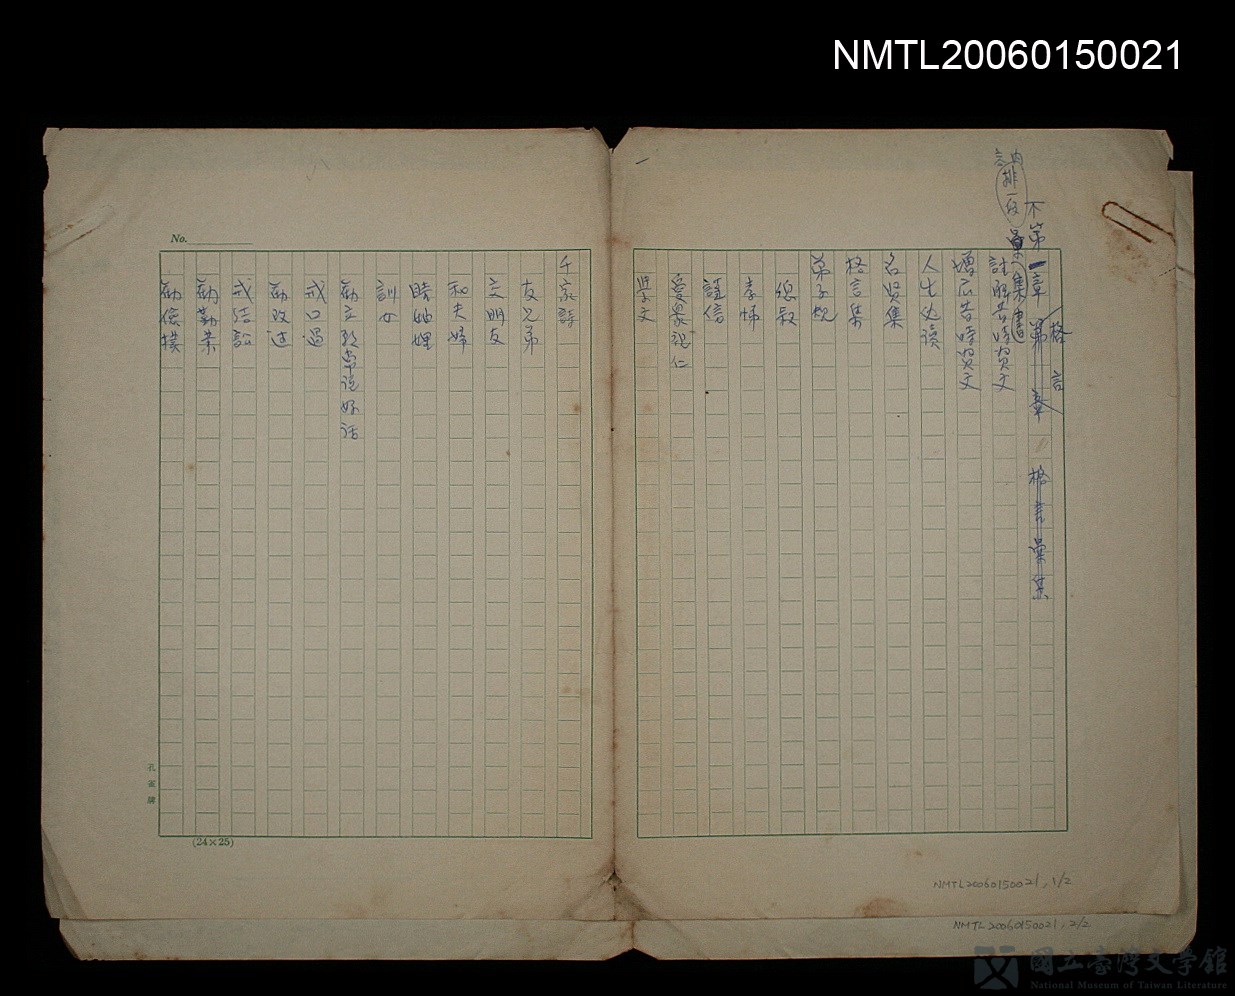 NMTL20060150021
內排一段
不第一章 格言
集書
第 章 格言彙集
註解昔時賢文
增広昔時賢文
人生必讀
名賢集
格言集
弟子規
總敍
孝悌
謹信
愛衆親仁
學文
No.
千家詩
友兄弟
交朋友
和夫婦
睦妯娌
訓女
戒口過
勸改过
戒結訟
勸勤業
勸儉樸
孔雀牌
(24×25)
NMTL20060150021, 1/2
NMTL20060150021, 2/2
國立臺灣文學館
National Museum of Taiwan Literature